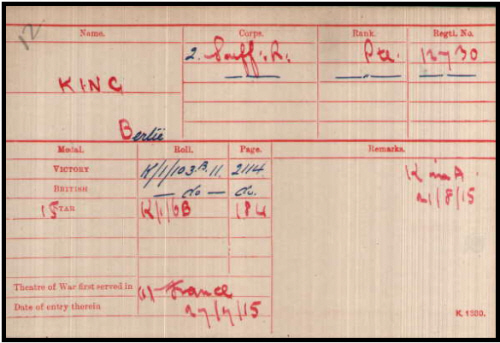 12
Name. Corps. Rank. Regtl. No.
2. Suff: R. Pte. 12730
KING
Bertie
Medal. Roll. Page. Remarks.
VICTORY K/1/103.B.11. 2114 K in A.
BRITISH — do — do. 21/8/15
15 STAR K/1/6B 184
Theatre of War first served in (1) France
Date of entry therein 27/7/15
K. 1380.